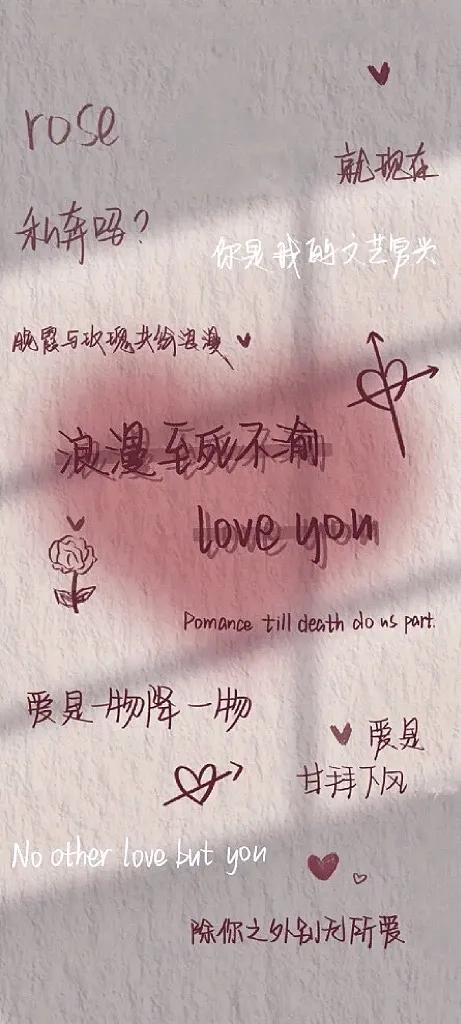 rose
就现在
私奔吗?
你是我的文艺冒尖
晚霞与玫瑰共给浪漫
浪漫至死不渝
love you
Pomance till death do us part.
爱是一物降一物
爱是
甘拜下风
No other love but you
除你之外别无所爱